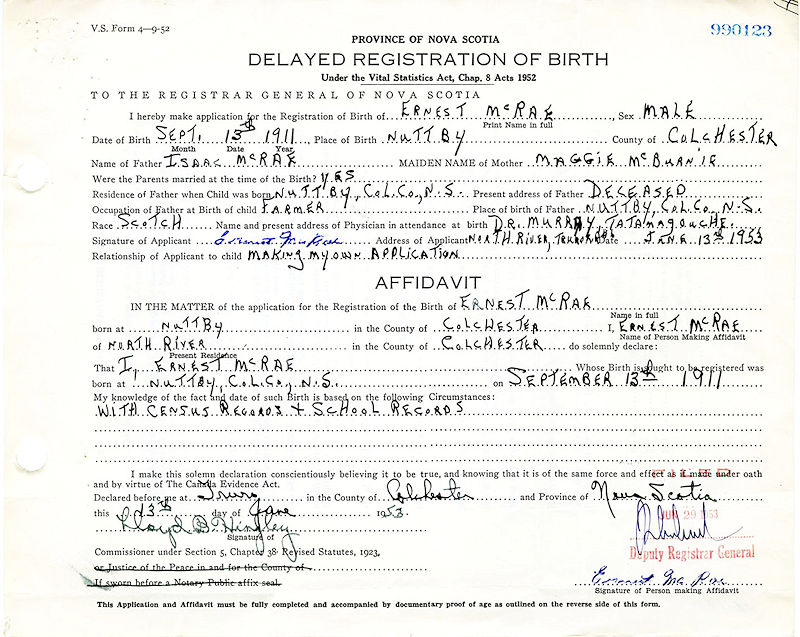 V.S. Form 4—9-52
990123
PROVINCE OF NOVA SCOTIA
DELAYED REGISTRATION OF BIRTH
Under the Vital Statistics Act, Chap. 8 Acts 1952
TO THE REGISTRAR GENERAL OF NOVA SCOTIA
I hereby make application for the Registration of Birth of ERNEST McRAE, Sex MALE
Print Name in full
Date of Birth SEPT. 13th 1911, Place of Birth NUTTBY County of COLCHESTER
Month Date Year
Name of Father ISAAC McRAE MAIDEN NAME of Mother MAGGIE McBURNIE
Were the Parents married at the time of the Birth? YES
Residence of Father when Child was born NUTTBY, COL. CO., N.S. Present address of Father DECEASED
Occupation of Father at Birth of child FARMER Place of birth of Father NUTTBY, COL. CO., N.S.
Race SCOTCH Name and present address of Physician in attendance at birth DR. MURRAY, TATAMAGOUCHE.
Signature of Applicant Ernest McRae Address of Applicant NORTH RIVER, Date JUNE 13th 1953
Relationship of Applicant to child MAKING MY OWN APPLICATION
AFFIDAVIT
IN THE MATTER of the application for the Registration of the Birth of ERNEST McRAE
Name in full
born at NUTTBY in the County of COLCHESTER I, ERNEST McRAE
Name of Person Making Affidavit
of NORTH RIVER in the County of COLCHESTER do solemnly declare:
Present Residence
That I, ERNEST McRAE Whose Birth is sought to be registered was
born at NUTTBY, COL. CO., N.S. on SEPTEMBER 13th 1911
My knowledge of the fact and date of such Birth is based on the following Circumstances:
WITH CENSUS RECORDS & SCHOOL RECORDS
I make this solemn declaration conscientiously believing it to be true, and knowing that it is of the same force and effect as if made under oath
and by virtue of The Canada Evidence Act.
Declared before me at Truro in the County of Colchester and Province of Nova Scotia
this 13th day of June 1953.
JUN 29 1953
Lloyd B Hingley
Signature of
Commissioner under Section 5, Chapter 38 Revised Statutes, 1923,
Deputy Registrar General
or Justice of the Peace in and for the County of
If sworn before a Notary Public affix seal.
Ernest McRae
Signature of Person making Affidavit
This Application and Affidavit must be fully completed and accompanied by documentary proof of age as outlined on the reverse side of this form.